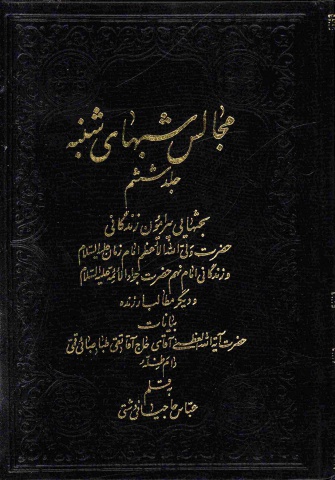 مجالس شبهای شنبه
جلد ششم
بحثهایی پیرامون زندگانی
حضرت ولی الله الاعظم امام زمان علیه السلام
و زندگانی امام نهم حضرت جواد الائمه علیه السلام
و دیگر مطالب ارزنده
بیانات
حضرت آیة الله العظمی آقای حاج آقا تقی طباطبائی قمی
دام ظله
به قلم
عباس حاجیانی دشتی